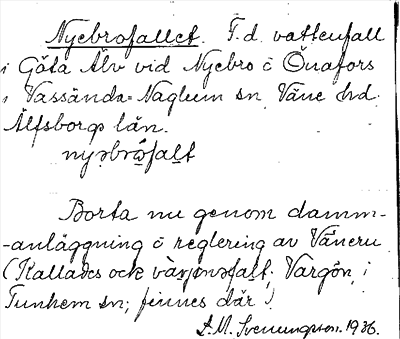 Nyebrofallet. F.d. vattenfall
i Göta Älv vid Nyebro o Önafors
i Vassända-Naglum sn. Väne hd.
Älfsborgs län.
Borta nu genom damm-
-anläggning o reglering av Vänern
(Kallades ock Vargön, i
Tunhem sn; finnes där.)
Svenungsson. 1936.